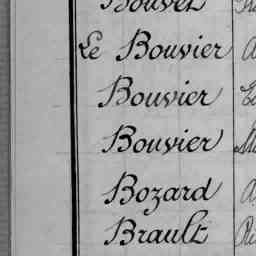 Bouvet
Le Bouvier
Bouvier
Bouvier
Bozard
Brault